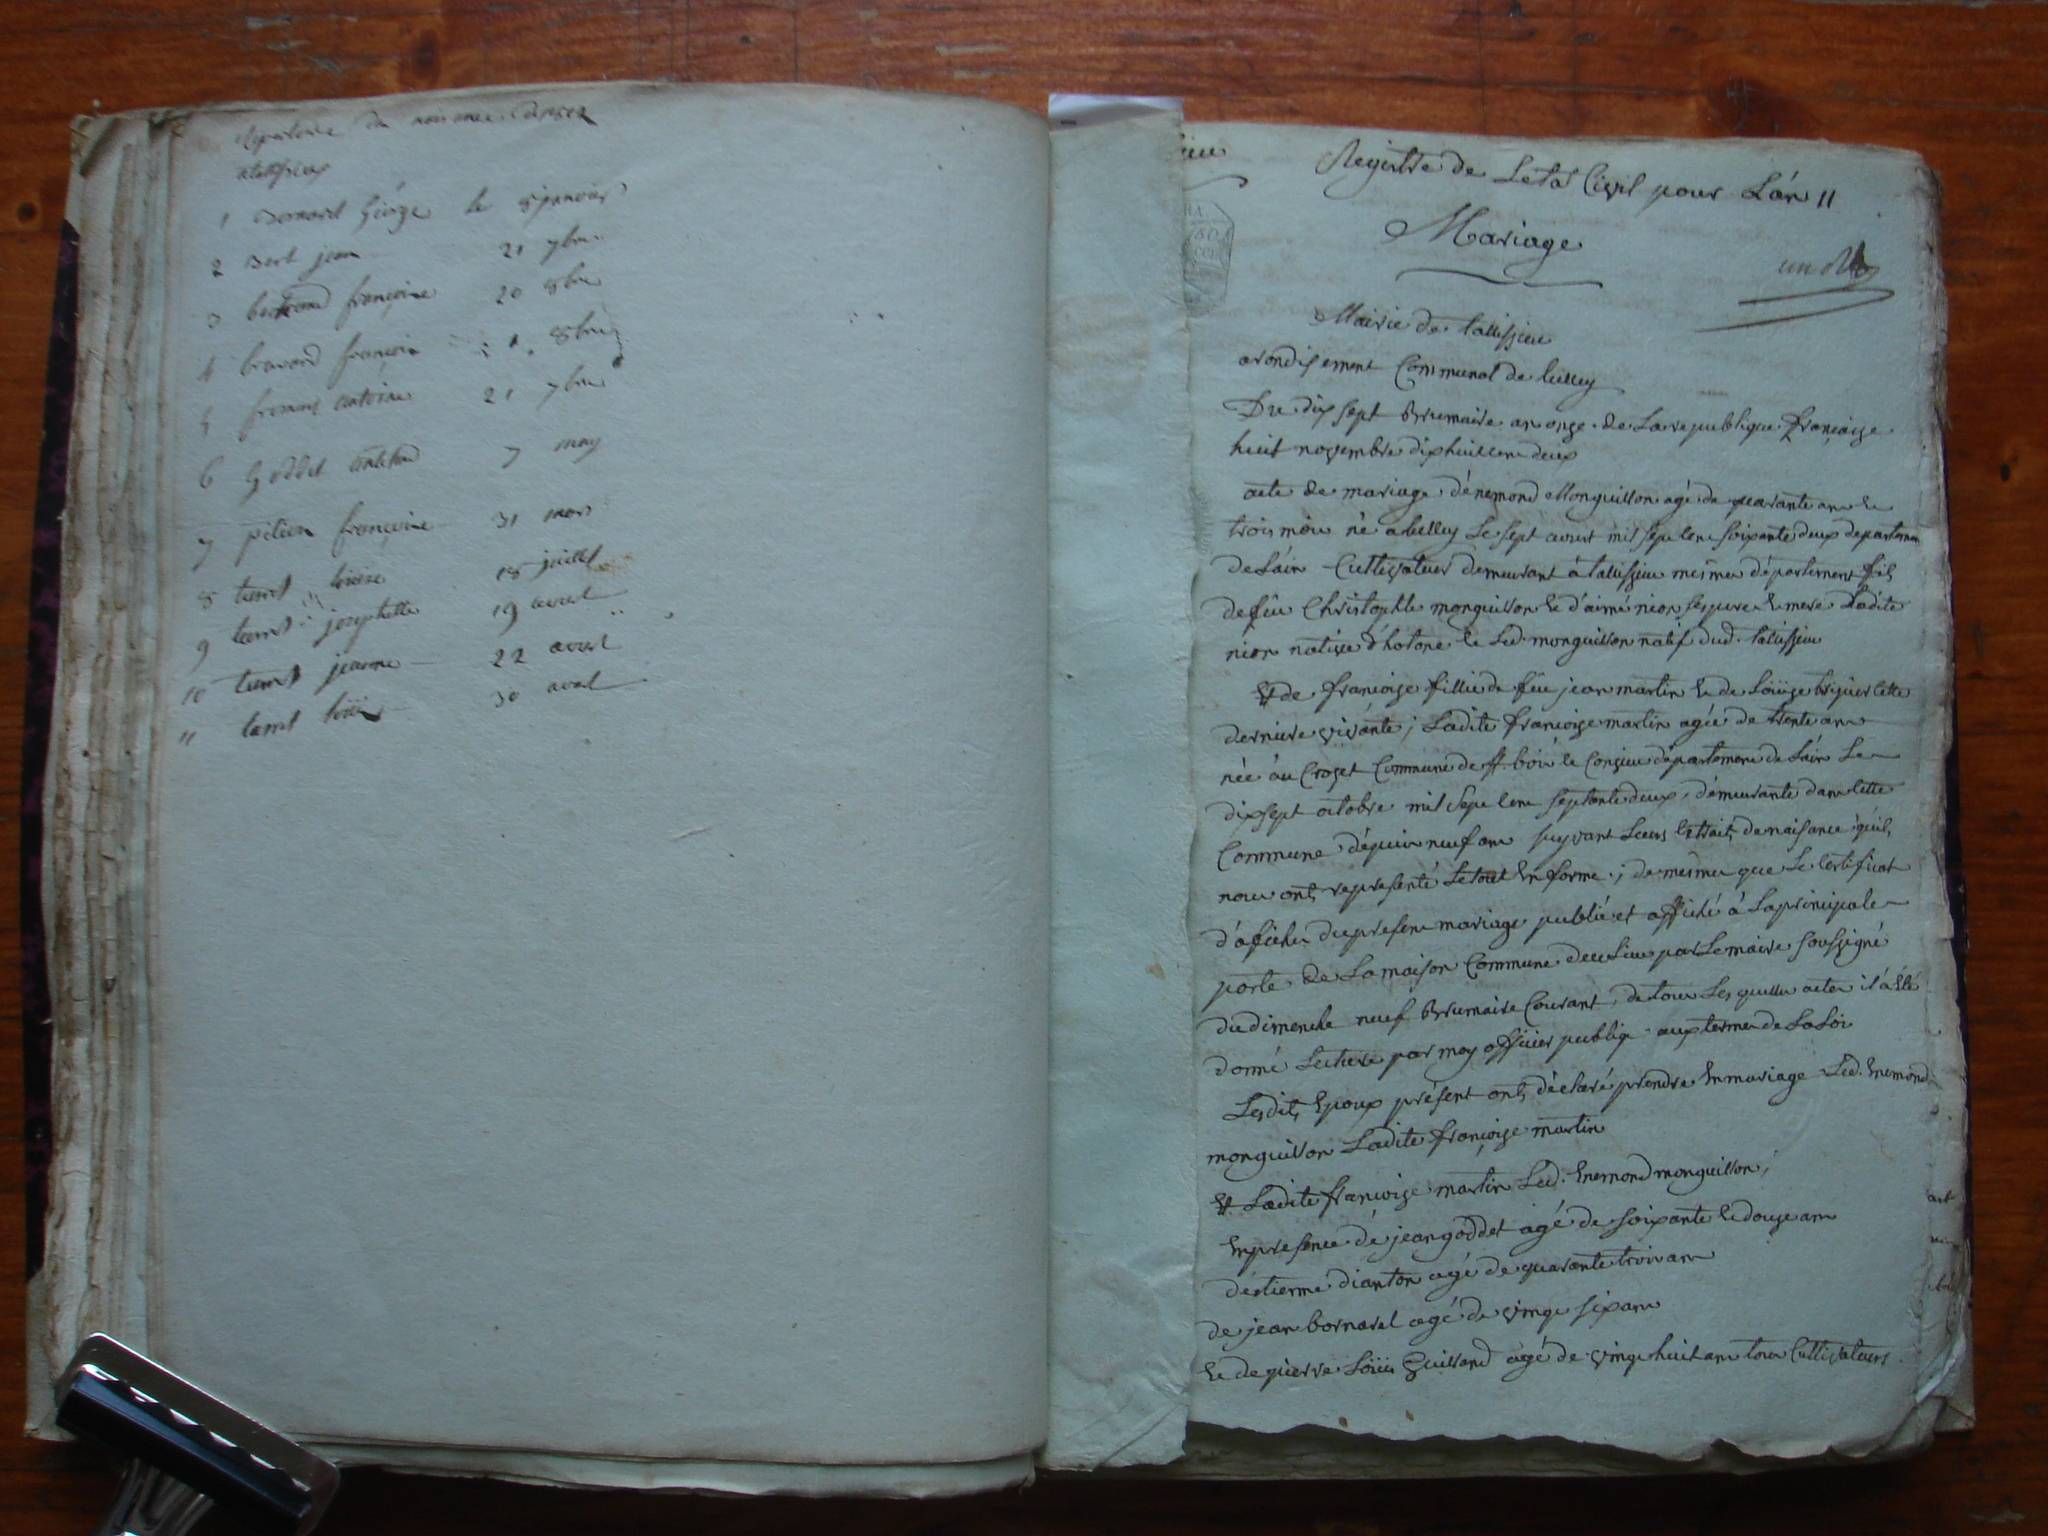 Repertoire de
a talissieux
1 Bernard George le 8 janvier
2 Bert jean 21 7bre
3 bertrand françoise 20 8bre
4 bravard françois 1 8bre
5 antoine 21 7bre
6 Goddet 7 may
7 pition françoise 31 mars
8 louise 18 juillet
9 josephette 19 avril
10 jeanne 22 avril
11 30 avril
Registre de Letat Civil pour Lan 11
Mariage
Mairie de talissieu
arondisement Communal de belley
Du dix sept Brumaire an onze de La republique françaize
huit novembre dix huit cen deux
acte de mariage d'énemond Monguillon agé de quarante ans et
trois mois né a belley Le sept avust mil sept cens soixante deux departemen
de Láin Cultivateur demeurant á talissieu mesme département fils
de feu Christophle monguillon et d'aimé nion ses pere et mere Ladite
nion native d'hotone et Led. monguillon natif dud. talissieu
Et de françoise fillie de feu jean martin et de Loüise briquier cette
derniere vivante; Ladite francoise martin agée de trente ans
née au Crozet Commune de st. bois le département de Láin Le
dix sept octobre mil sept cens septante deux, démeurante dans cette
Commune dépuis neuf ans suyvant Leurs Extraits de naisance quils
nous onts representé Le tout En forme; de mesme que Le Certificat
d'afiches du presens mariage publié et affiché á La principale
porte de La maison Commune de ce Lieu par Le maire soussigné
du dimenche neuf Brumaire Courant, de tous Les quelles actes il á Eté
donné Lecture par moy officier publiq aux termes de La Loi
Lesdits Epoux présent onts déclaré prendre En mariage Led. Enemond
monguillon Ladite françoise martin
Et Ladite francoise martin Led. Enemond monguillon;
En presence dé jean goddet agé de soixante et douze ans
d'éstienne dianton agé de quarante trois ans
de jean bornarel agé de vingt six ans
Et de pierre Loüis Guilland agé de vingt huit ans tous Cultivateurs